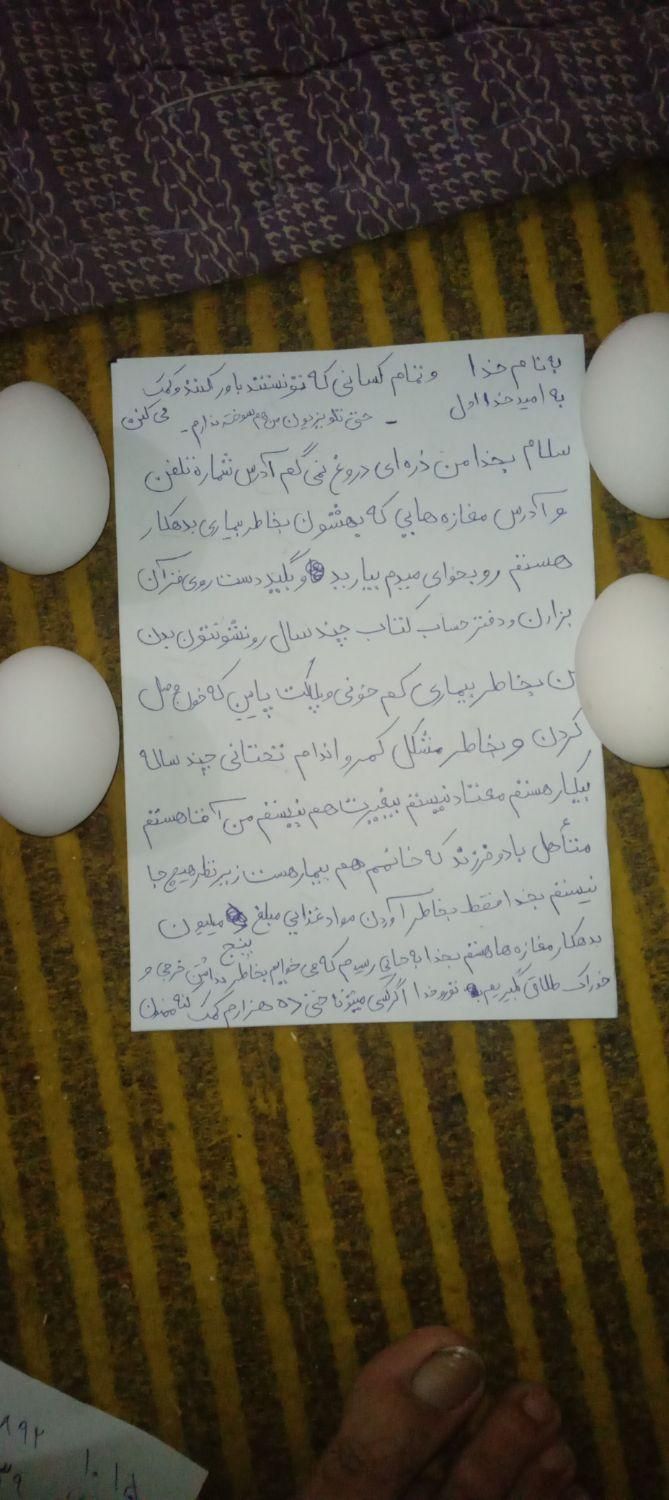 به نام خدا
به امید خدا اول و تمام کسانی که تونستند باور کنند و کمک می کنن
- حتی تلویزیون من هم سوخته ندارم -
سلام بخدا من ذره ای دروغ نمی گم آدرس شماره تلفن
و آدرس مغازه هایی که بهشون بخاطر بیماری بدهکار
هستم رو بخوای میدم بیایید و بگید دست روی قرآن
بزارن و دفتر حساب کتاب چند سال رو نشونتون بدن
من بخاطر بیماری کم خونی و پلاکت پایین که خون
کردن و بخاطر مشکل کمر و اندام تحتانی چند ساله
بیکار هستم معتاد نیستم بیغیرت هم نیستم من آقا هستم
متأهل با دو فرزند که خانمم هم بیمار هست زیر نظر هیچ جا
نیستم بخدا فقط بخاطر آوردن مواد غذایی مبلغ پنج میلیون
بدهکار مغازه ها هستم بخدا به جایی رسیدم که می خوایم بخاطر نداشتن خرجی و
خوراک طلاق بگیریم تورو خدا اگر کسی میتونه حتی ده هزارم کمک کنه ممنون
۸۹۲
۳۹
۱۰